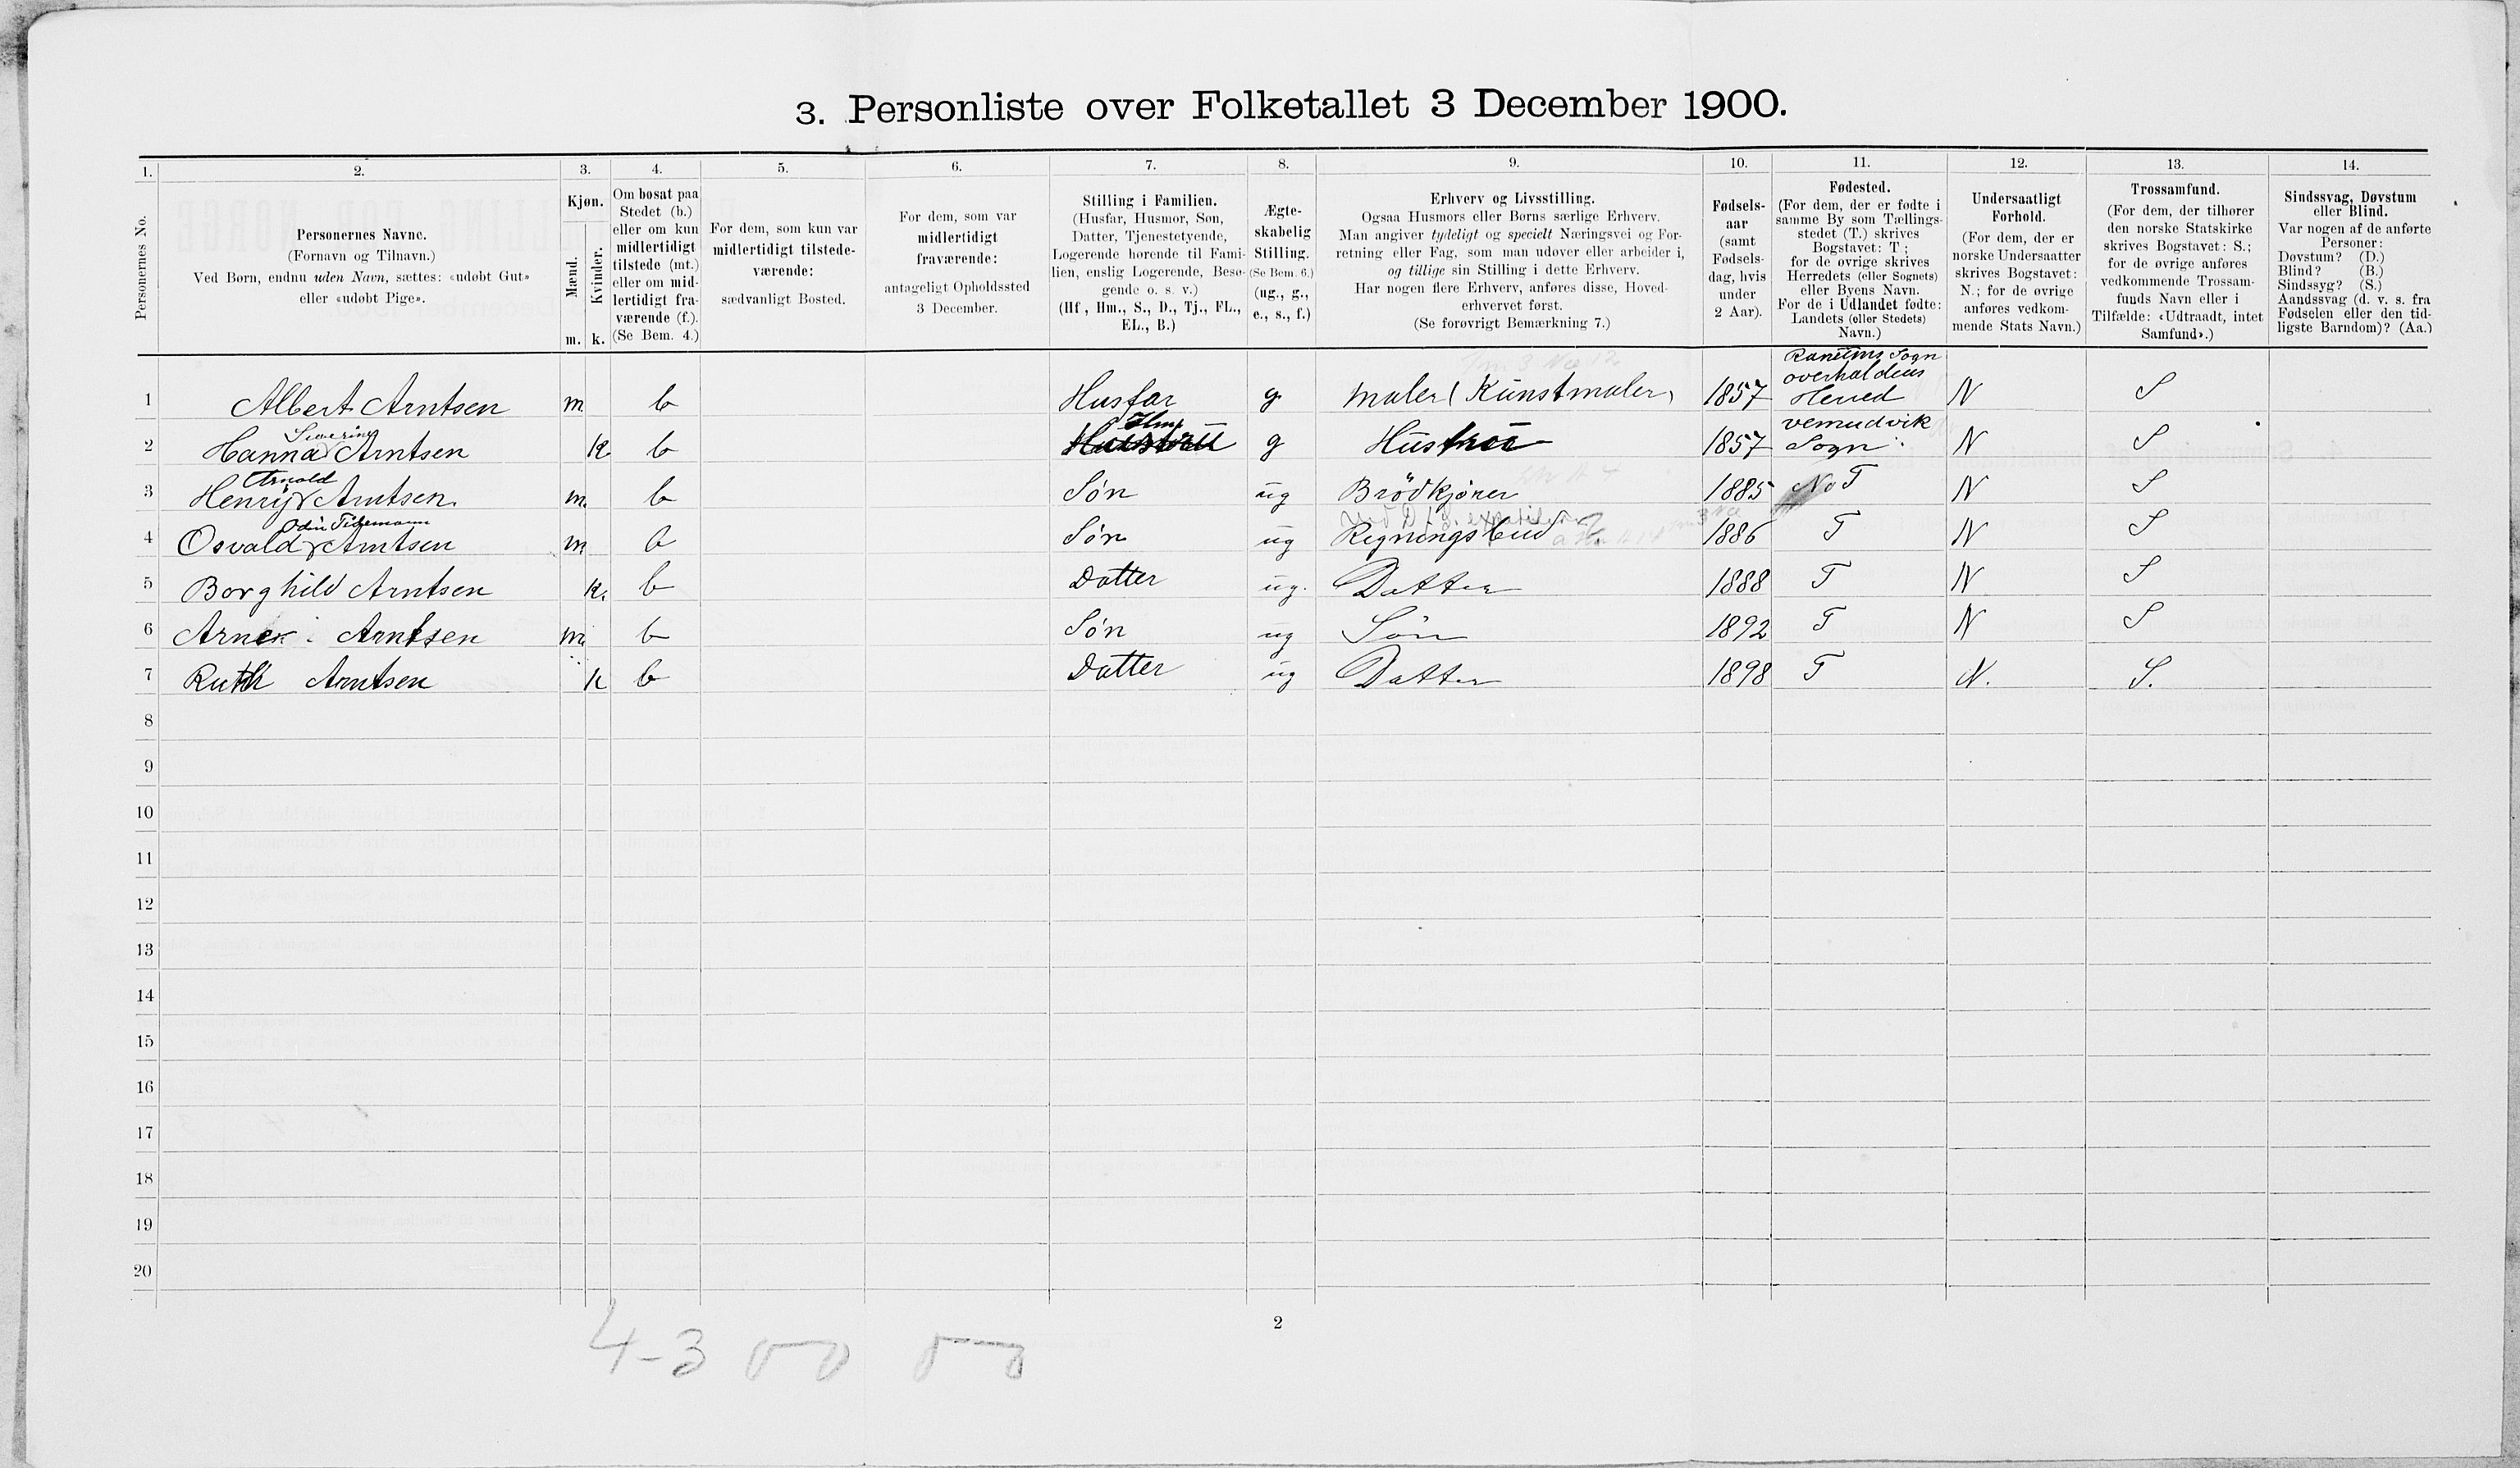 3. Personliste over Folketallet 3 December 1900.
1. 2. 3. 4. 5. 6. 7. 8. 9. 10. 11. 12. 13. 14.
Personernes No.
Personernes Navne.
(Fornavn og Tilnavn.)
Ved Børn, endnu uden Navn, sættes: «udøbt Gut»
eller «udøbt Pige».
Kjøn.
Mænd.
m.
Kvinder.
k.
Om bosat paa
Stedet (b.)
eller om kun
midlertidigt
tilstede (mt.)
eller om mid-
lertidigt fra-
værende (f.).
(Se Bem. 4.)
For dem, som kun var
midlertidigt tilstede-
værende:
sædvanligt Bosted.
For dem, som var
midlertidigt
fraværende:
antageligt Opholdssted
3 December.
Stilling i Familien.
(Husfar, Husmor, Søn,
Datter, Tjenestetyende,
Logerende hørende til Fami-
lien, enslig Logerende, Besø-
gende o. s. v.)
(Hf, Hm., S., D., Tj., FL.,
EL., B.)
Ægte-
skabelig
Stilling.
(Se Bem. 6.)
(ug., g.,
e., s., f.)
Erhverv og Livsstilling.
Ogsaa Husmors eller Børns særlige Erhverv.
Man angiver tydeligt og specielt Næringsvei og For-
retning eller Fag, som man udøver eller arbeider i,
og tillige sin Stilling i dette Erhverv.
Har nogen flere Erhverv, anføres disse, Hoved-
erhvervet først.
(Se forøvrigt Bemærkning 7.)
Fødsels-
aar
(samt
Fødsels-
dag, hvis
under
2 Aar).
Fødested.
(For dem, der er fødte i
samme By som Tællings-
stedet (T.) skrives
Bogstavet: T;
for de øvrige skrives
Herredets (eller Sognets)
eller Byens Navn.
For de i Udlandet fødte:
Landets (eller Stedets)
Navn.)
Undersaatligt
Forhold.
(For dem, der er
norske Undersaatter
skrives Bogstavet:
N.; for de øvrige
anføres vedkom-
mende Stats Navn.)
Trossamfund.
(For dem, der tilhører
den norske Statskirke
skrives Bogstavet: S.;
for de øvrige anføres
vedkommende Trossam-
funds Navn eller i
Tilfælde: «Udtraadt, intet
Samfund».)
Sindssvag, Døvstum
eller Blind.
Var nogen af de anførte
Personer:
Døvstum? (D.)
Blind? (B.)
Sindssyg? (S.)
Aandssvag (d. v. s. fra
Fødselen eller den tid-
ligste Barndom)? (Aa.)
Ranems Sogn
overhaldens
1 Albert Arntsen m b Husfar g maler (Kunstmaler) 1857 Herred N S
Severine Hm vemudvik
2 Hanna Arntsen k. b g Hustru 1857 Sogn N S
Arnold
3 Henry Arntsen. m. b Søn ug Brödkjører 1885 T N S
Odin Tidemann
4 Osvald Arntsen m b Søn ug Regningsbud 1886 T N S
5 Borghild Arntsen k. b Datter ug. Datter 1888 T N S
6 Arne Arntsen m. b Søn ug Sön 1892 T N S
7 Ruth Arntsen k b Datter ug Datter 1898 T N. S.
8
9
10
11
12
13
14
15
16
17
18
19
20
2
4-3